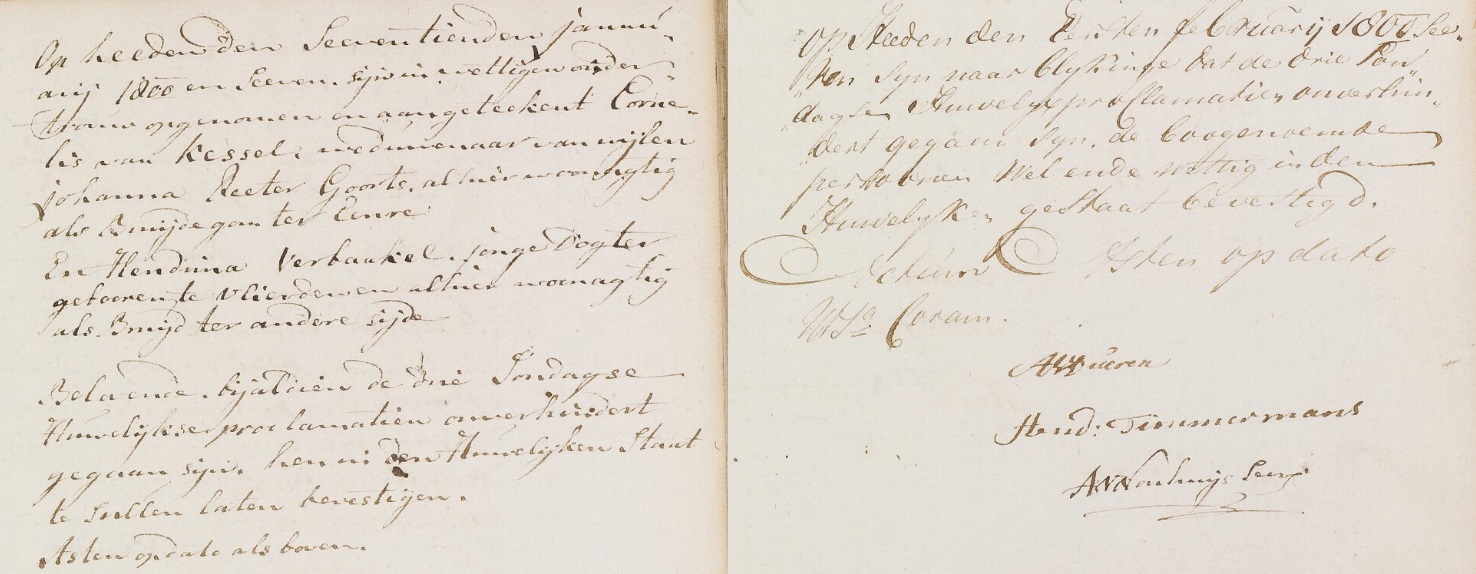 Op heeden den Seeventienden Janua„
arij 1800 en Seeven, sijn in wettigen onder
trouw opgenomen en aangeteekent Corne„
lis van Kessel, weduwenaar van wijlen
Johanna Peeter Goorts, alhier woonagtig
als Bruijdegom ter Eenre
En Hendrina Verbaakel, jonge Dogter
gebooren te Vlierden en alhier woonagtig
als Bruijd ter andere sijde
Belovende, bijaldien de drie Sondagse
Huwelijkse proclamatien onverhindert
gegaan sijn, hen in den Huwelijken Staat
te Sullen laten bevestigen.
Asten op dato als boven.
Op Heeden den Eersten februarij 1800 See„
ven Syn naar blykinge dat de drie Son„
daagse Huwelyxproclamatien onverhin„
dert gegaan Syn, de boogenoemde
persoonen Wel ende wettig in den
Huwelyken gestaat bevestigd.
Actum Asten op dato
Coram.
Hend: Timmermans